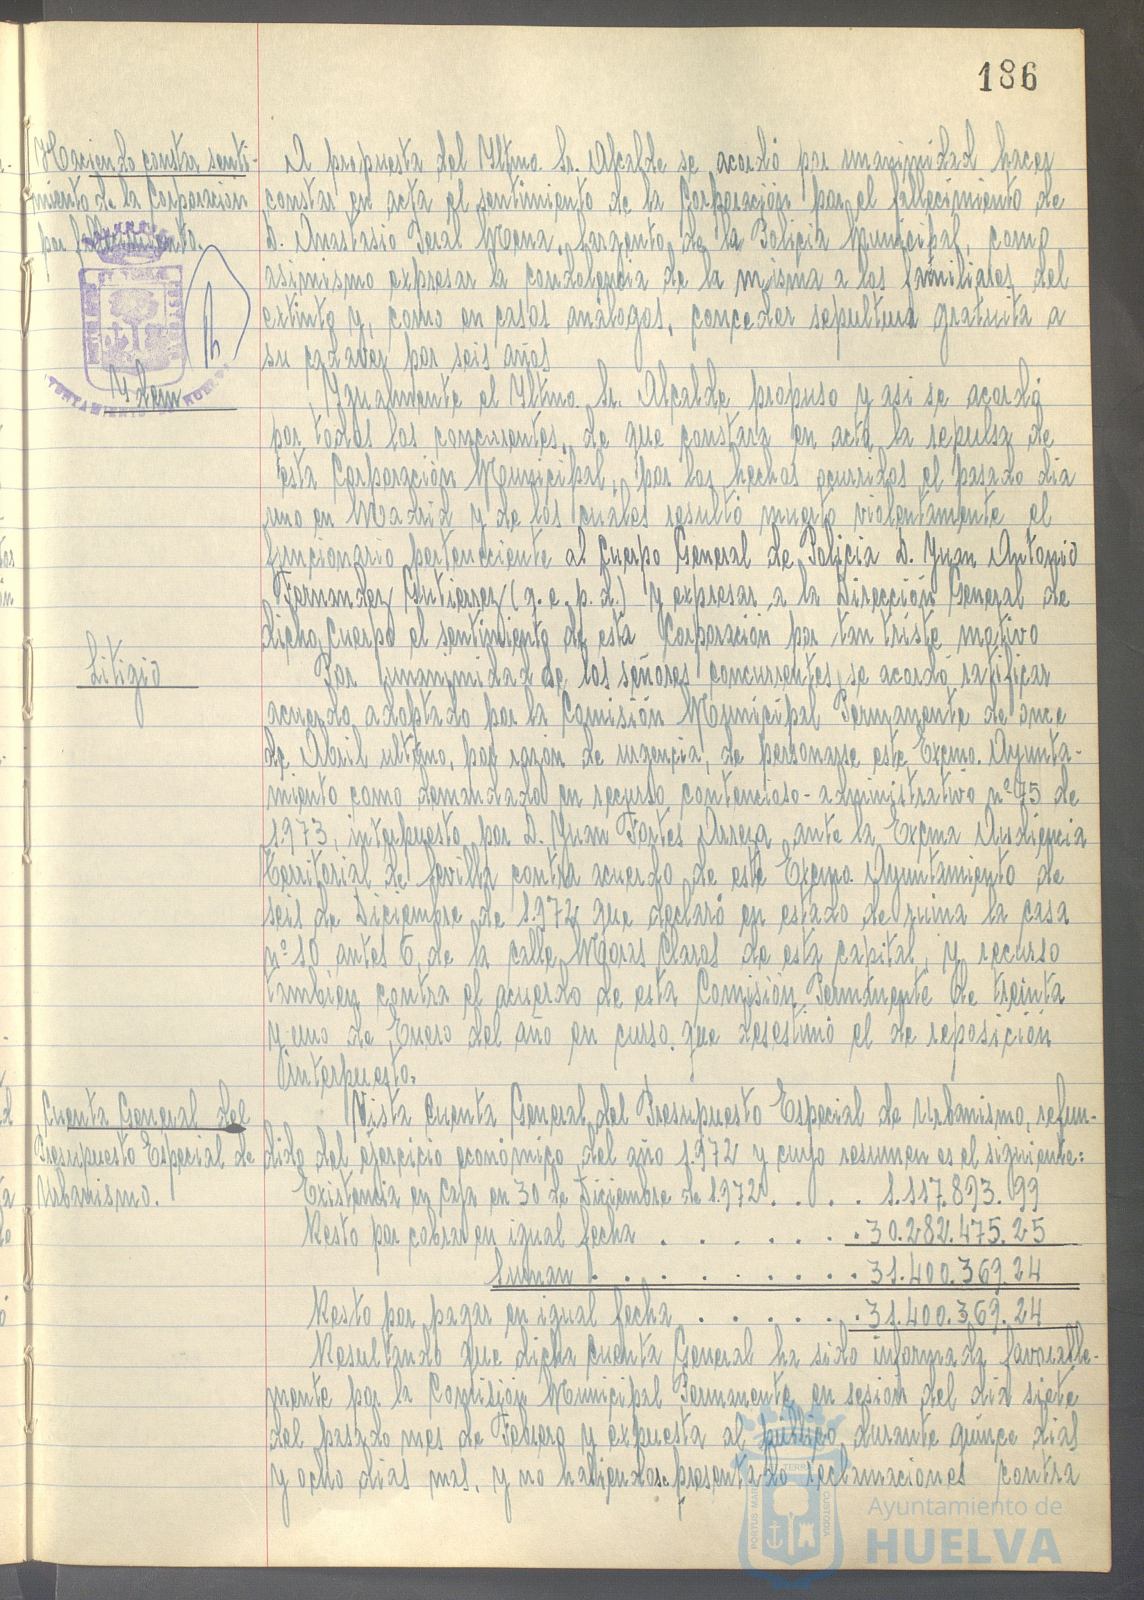 186
Haciendo constar senti-
miento de la Corporación
por fallecimiento.
A propuesta del Iltmo. Sr. Alcalde se acordó por unanimidad hacer
constar en acta el sentimiento de la Corporación por el fallecimiento de
D. Anastasio Peral Mena, Sargento de la Policia Municipal, como
asimismo expresar la condolencia de la misma a los familiares del
extinto y, como en casos análogos, conceder sepultura gratuita a
su cadaver por seis años
Idem
Igualmente el Iltmo. Sr. Alcalde propuso y asi se acordó
por todos los concurrentes, de que constara en acta la repulsa de
esta Corporación Municipal, por los hechos ocurridos el pasado dia
uno en Madrid y de los cuales resultó muerto violentamente el
funcionario perteneciente al Cuerpo General de Policia D. Juan Antonio
Fernandez Gutierrez (q. e. p. d.) y expresar a la Dirección General de
dicho Cuerpo el sentimiento de esta Corporación por tan triste motivo
Litigio
Por unanimidad de los señores concurrentes, se acordó ratificar
acuerdo adoptado por la Comisión Municipal Permanente de once
de Abril ultimo, por razón de urgencia, de personarse este Excmo. Ayunta-
miento como demandado en recurso contencioso-administrativo nº 75 de
1.973, interpuesto por D. Juan Fortes ante la Excma Audiencia
Territorial de Sevilla contra acuerdo de este Excmo. Ayuntamiento de
seis de Diciembre de 1.972 que declaró en estado de ruina la casa
nº 10 antes 6, de la calle Moras Claros de esta capital, y recurso
tambien contra el acuerdo de esta Comisión Permanente de treinta
y uno de Enero del año en curso que desestimó el de reposición
interpuesto.
Cuenta General del
Presupuesto Especial de
Urbanismo.
Vista Cuenta General del Presupuesto Especial de Urbanismo, refun-
dido del ejercicio económico del año 1.972 y cuyo resumen es el siguiente:
Existencia en Caja en 30 de Diciembre de 1.972 . . . . 1.117.893.99
Resto por cobrar en igual fecha . . . . . . . 30.282.475.25
Suman . . . . . . . . . . 31.400.369.24
Resto por pagar en igual fecha . . . . . . 31.400.369.24
Resultando que dicha Cuenta General ha sido informada favorable-
mente por la Comisión Municipal Permanente en sesión del dia siete
del pasado mes de Febrero y expuesta al público durante quince dias
y ocho dias mas, y no habiendose presentado reclamaciones contra
PORTUS MARIS
TERRAE
CUSTODIA
Ayuntamiento de
HUELVA